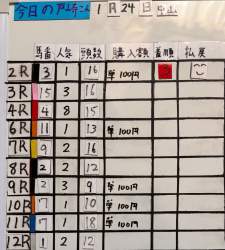 今日の 1月24日 中山
馬番 人気 頭数 購入額 着順 払戻
2R 3 1 16 単100円
3R 15 3 16
4R 4 8 15
6R 11 1 13 単100円
7R 9 2 16
8R 2 2 12
9R 2 3 9 単100円
10R 7 1 10 単100円
11R 7 1 18 単100円
12R 1 2 12